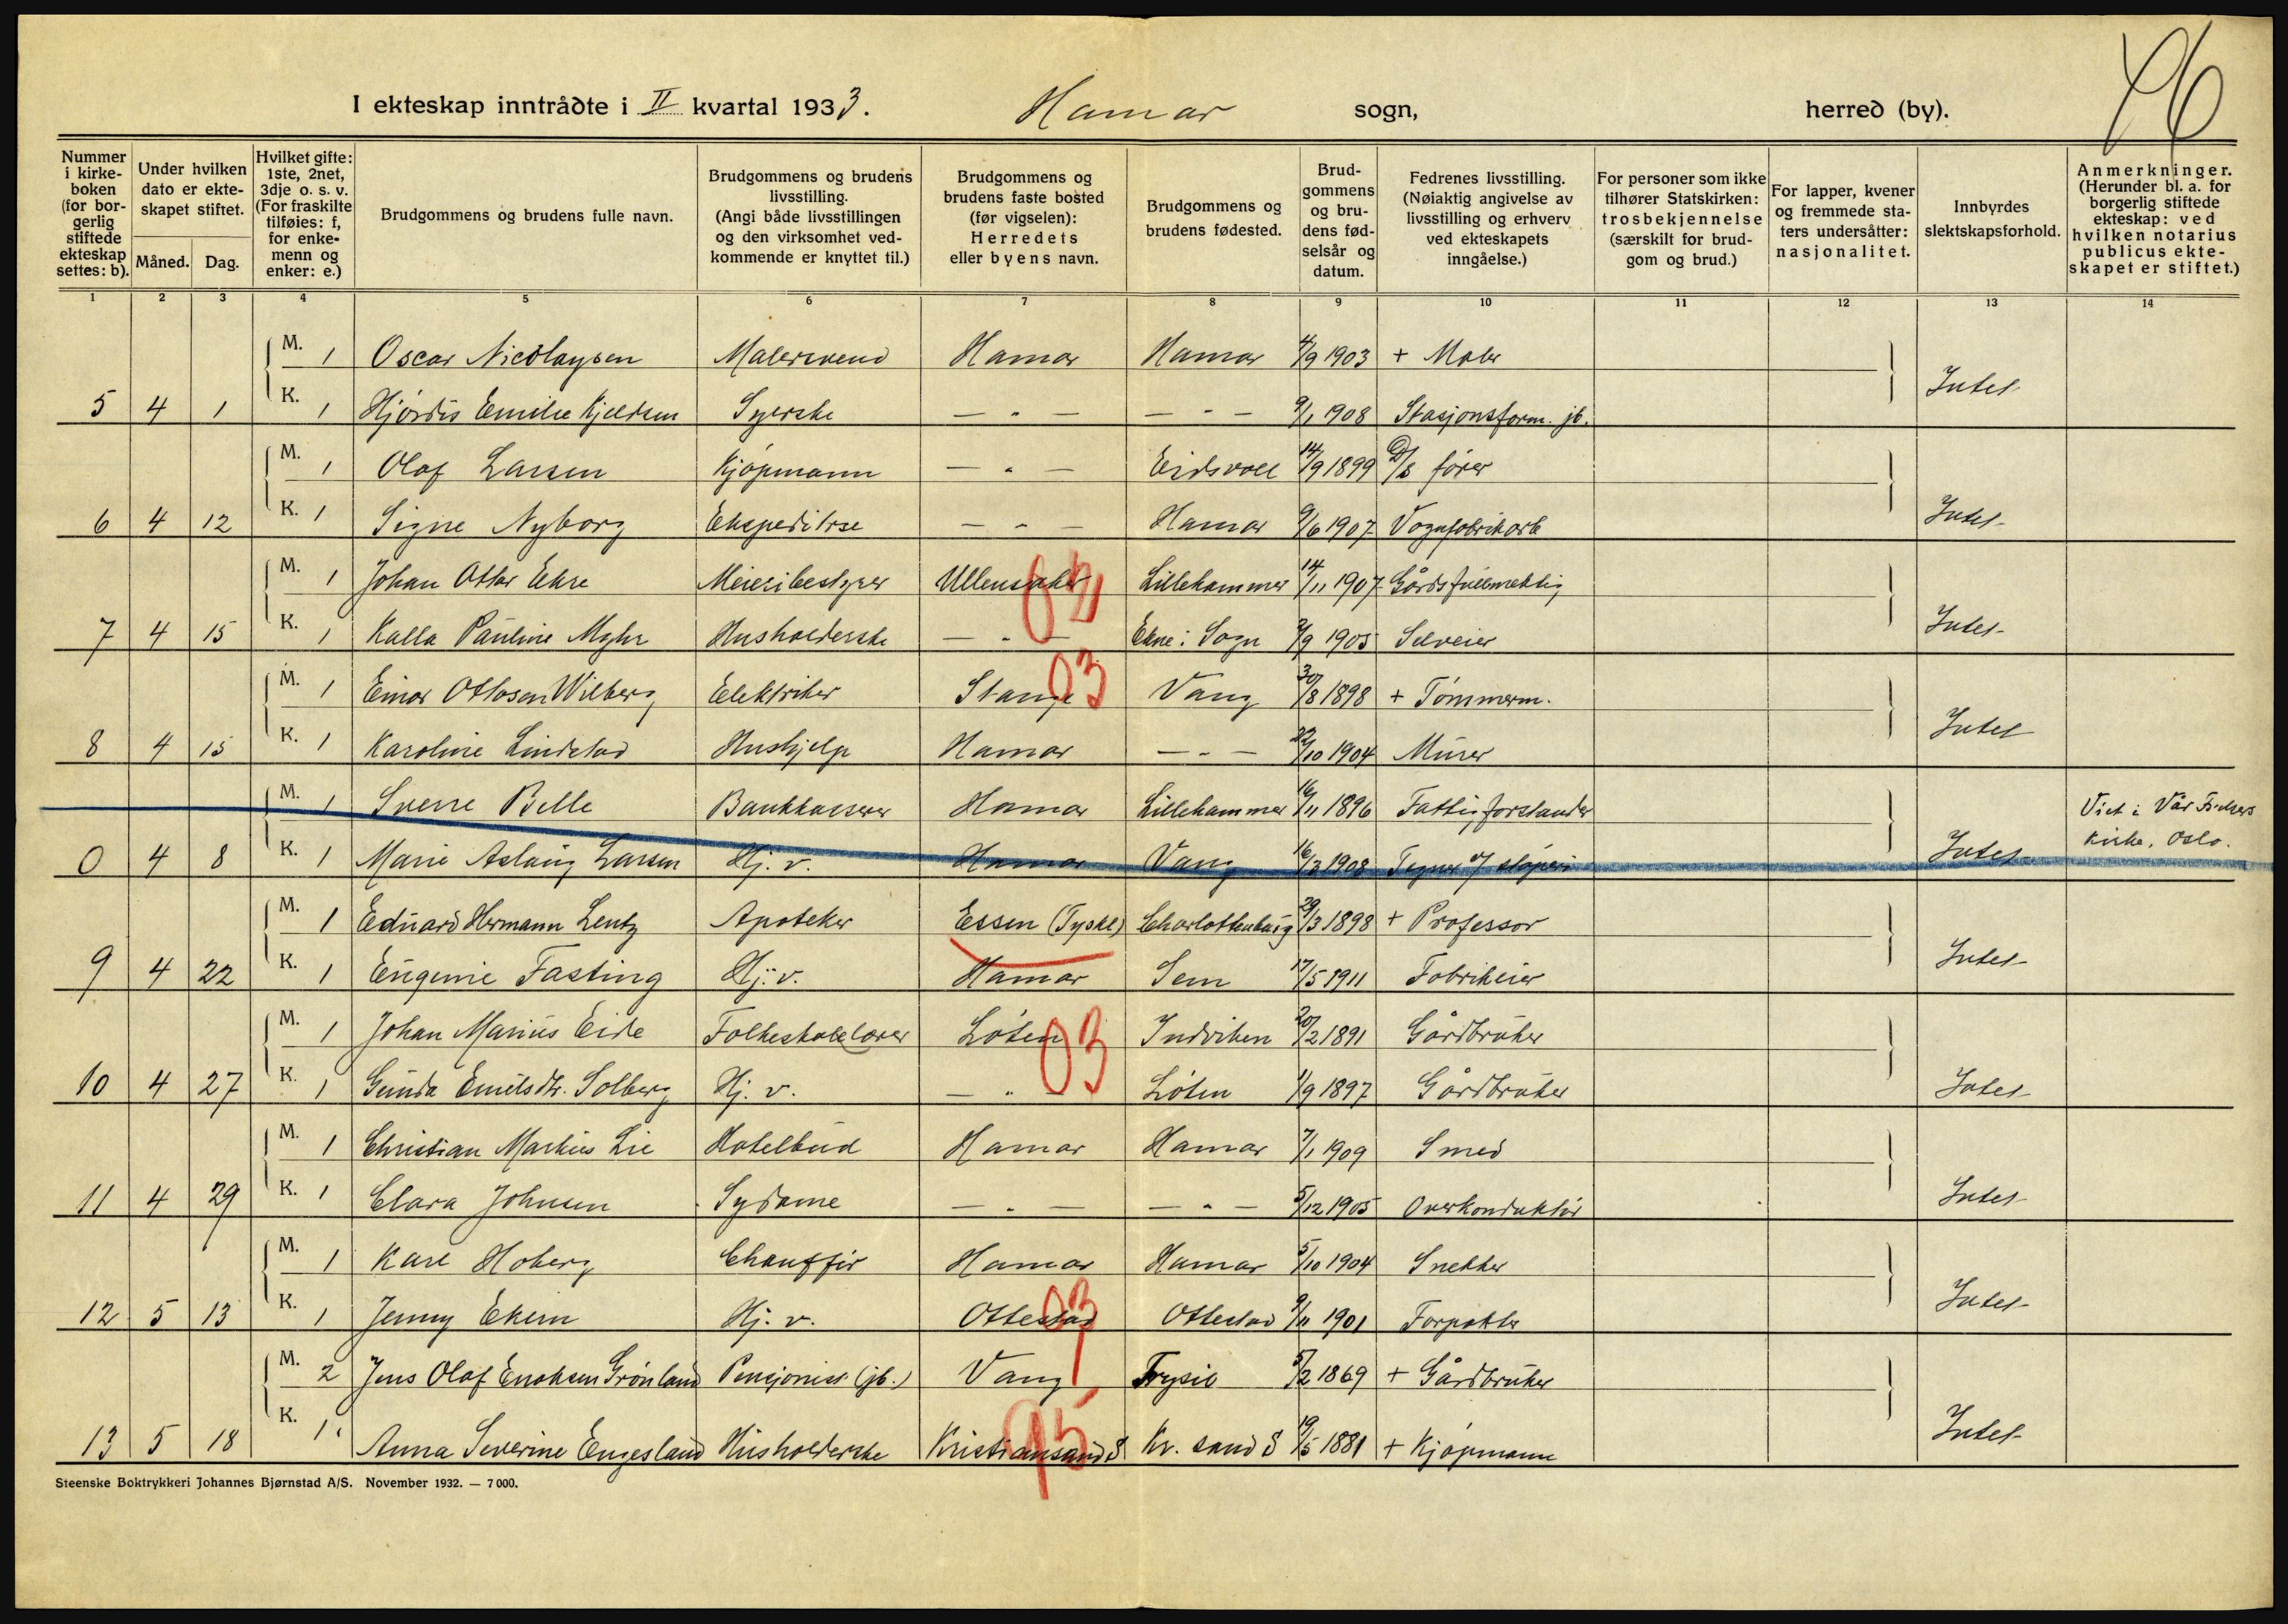 I ekteskap inntrådte i II kvartal 1933. Hamar sogn, herred (by).
Nummer i kirkeboken (for borgerlig stiftede ekteskap settes: b).
Under hvilken dato er ekteskapet stiftet.
Måned. Dag.
Hvilket gifte: 1ste, 2net, 3dje o. s. v. (For fraskilte tilføies: f, for enkemenn og enker: e.)
Brudgommens og brudens fulle navn.
Brudgommens og brudens livsstilling. (Angi både livsstillingen og den virksomhet vedkommende er knyttet til.)
Brudgommens og brudens faste bosted (før vigselen): Herredets eller byens navn.
Brudgommens og brudens fødested.
Brudgommens og brudens fødselsår og datum.
Fedrenes livsstilling. (Nøiaktig angivelse av livsstilling og erhverv ved ekteskapets inngåelse.)
For personer som ikke tilhører Statskirken: trosbekjennelse (særskilt for brudgom og brud.)
For lapper, kvener og fremmede staters undersåtter: nasjonalitet.
Innbyrdes slektskapsforhold.
Anmerkninger. (Herunder bl. a. for borgerlig stiftede ekteskap: ved hvilken notarius publicus ekteskapet er stiftet.)
1 2 3 4 5 6 7 8 9 10 11 12 13 14
M. 1 Oscar Nicolaysen Malersvend Hamar Hamar 4/9 1903 + Maler
5 4 1 K. 1 Hjørdis Emilie Kjeldsen Syerske — " — — " — 9/1 1908 Stasjonsform. jb. Intet
M. 1 Olaf Larsen Kjøpmann — " — Eidsvoll 14/9 1899 D/S fører
6 4 12 K. 1 Signe Nyborg Ekspeditrse — " — Hamar 9/6 1907 Vognfabrikarb Intet
M. 1 Johan Ottar Ekre Meieribestyrer Ullensaker Lillehammer 14/11 1907 Gårdsfullmektig
7 4 15 K. 1 Kalla Pauline Myhr Husholderske — " — Sogn 2/9 1905 Selveier Intet
03
M. 1 Einar Ottosen Wilberg Elektriker Stange Vang 30/8 1898 + Tømmerm.
8 4 15 K. 1 Karoline Lindstad Hushjelp Hamar — " — 22/10 1904 Murer Intet
M. 1 Sverre Belle Bankkasserer Hamar Lillehammer 16/11 1896 Fattigforstander Viet i Vår Frelsers
0 4 8 K. 1 Marie Aslaug Larsen Hj. v. Hamar Vang 16/3 1908 Intet kirke, Oslo.
M. 1 Eduard Hermann Lentz Apoteker Essen (Tyskl) Charlottenburg 29/3 1898 + Professor
9 4 22 K. 1 Eugenie Fasting Hj. v. Hamar Sem 17/5 1911 Fabrikeier Intet
M. 1 Johan Marius Eide Folkeskolelærer Løten Indviken 20/2 1891 Gårdbruker
03
10 4 27 K. 1 Gunda Emilsdtr. Solberg Hj. v. — " — Løten 1/9 1897 Gårdbruker Intet
M. 1 Christian Markus Lie Hotelbud Hamar Hamar 7/1 1909 Smed
11 4 29 K. 1 Clara Johnsen Sydame — " — — " — 5/12 1905 Overkonduktør Intet
M. 1 Karl Hoberg Chauffør Hamar Hamar 5/10 1904 Snekker
03
12 5 13 K. 1 Jenny Ekern Hj. v. Ottestad Ottestad 9/11 1901 Forpakter Intet
M. 2 Jens Olaf Enoksen Grønland Pensjonist (jb.) Vang Trysil 5/2 1869 + Gårdbruker
13 5 18 K. 1 Anna Severine Engesland Husholderske Kristiansand S Kr. sand S 19/5 1881 + Kjøpmann Intet
Steenske Boktrykkeri Johannes Bjørnstad A/S. November 1932. — 7 000.